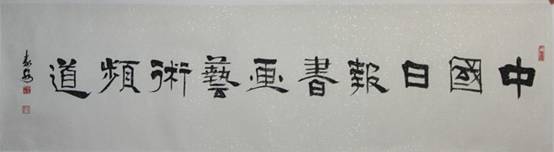 中國日報書画藝術頻道